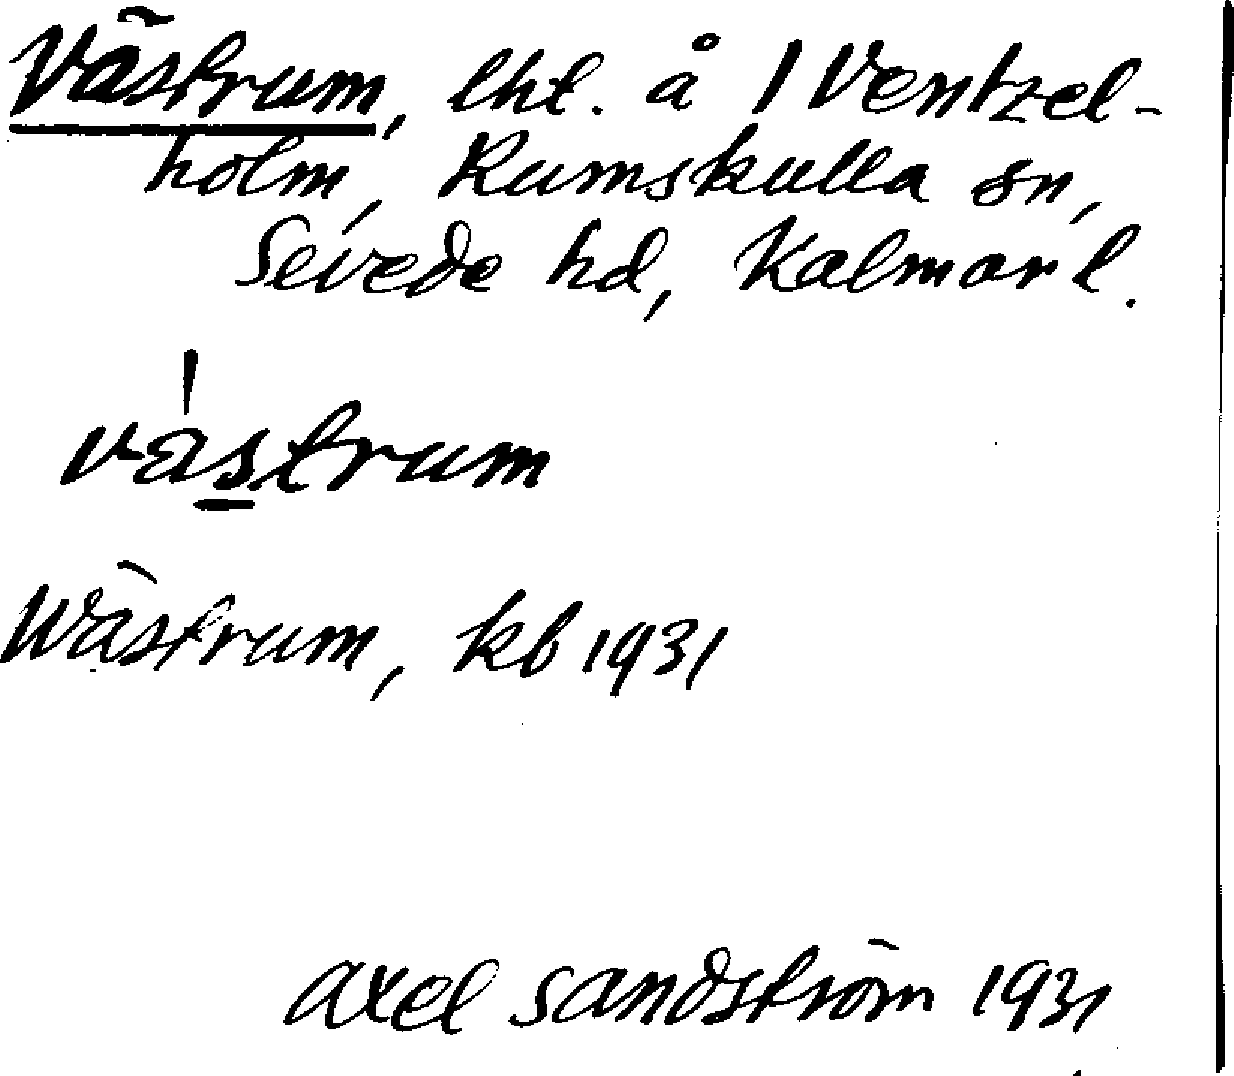 Västrum, lht. å 1 Ventzel-
holm, Rumskulla sn,
Sevede hd, Kalmar l.
våstrum
Wästrum, kb 1931
Axel Sandström 1931